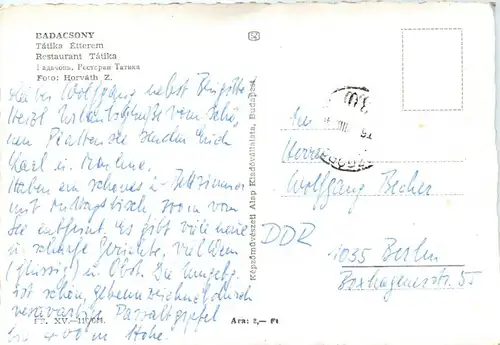 BADACSONY
Tátika Étterem
Restaurant Tátika
Бадачонь, Ресторан Татика
Foto: Horváth Z.
Lieber Wolfgang nebst Brigitte
Herzl. Urlaubsgrüße vom schö-
nen Plattensee senden Euch
Karl u. Marlene.
Haben ein schönes 2-Bettzimmer
mit Mittagstisch, 200 m vom
See entfernt. Es gibt viele neue
u. scharfe Gerichte, viel Wein
(flüssig) u. Obst. Die Umgebg.
ist schön, gekennzeichnet durch
Basaltgipfel
bis 400 m Höhe.
Képzőművészeti Alap Kiadóvállalata, Budapest
Herrn
Wolfgang Becher
DDR
1035 Berlin
Boxhagenerstr. 55
Ára: 2,— Ft